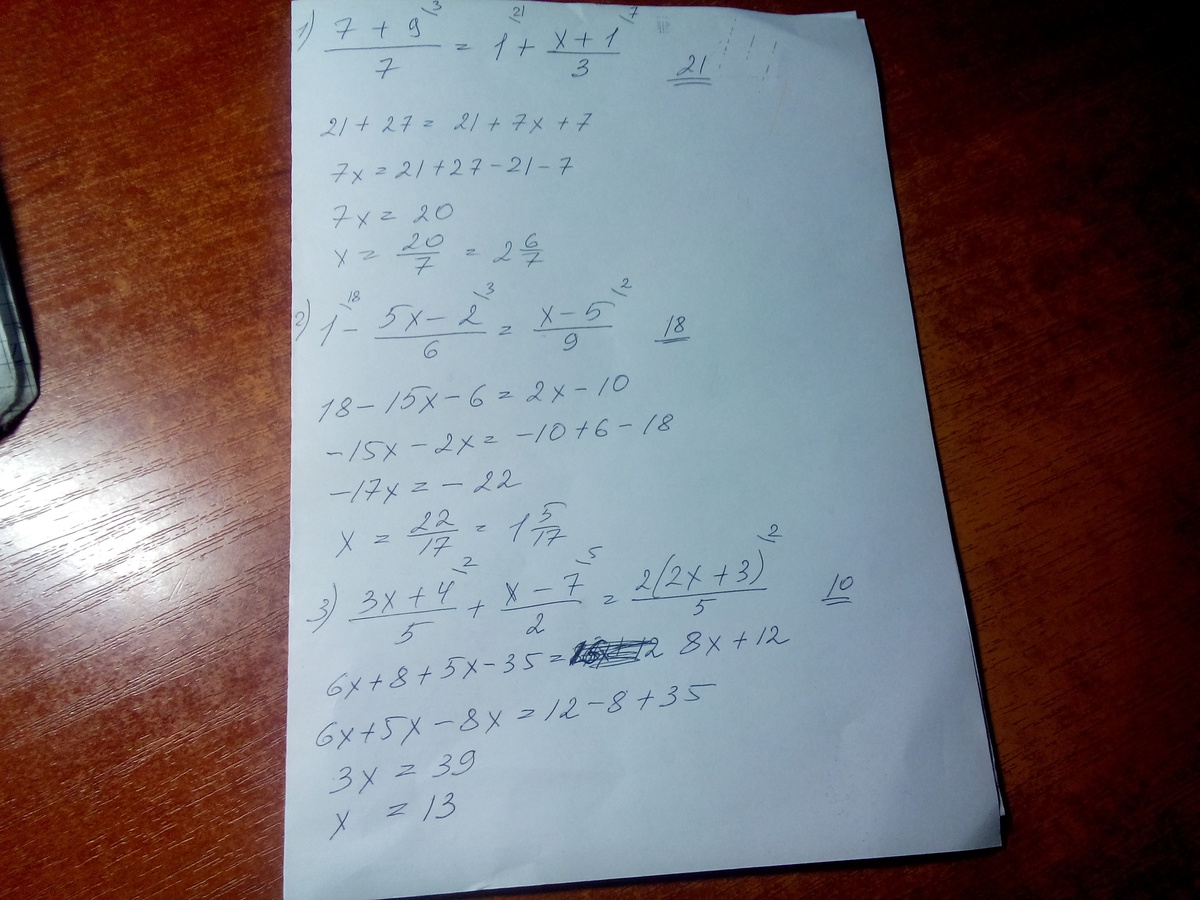 1) (7 + 9)/7 \3 = 1 \21 + (x + 1)/3 \7 21
21 + 27 = 21 + 7x + 7
7x = 21 + 27 - 21 - 7
7x = 20
x = 20/7 = 2 6/7
2) 1 \18 - (5x - 2)/6 \3 = (x - 5)/9 \2 18
18 - 15x - 6 = 2x - 10
-15x - 2x = -10 + 6 - 18
-17x = -22
x = 22/17 = 1 5/17
3) (3x + 4)/5 \2 + (x - 7)/2 \5 = 2(2x + 3)/5 \2 10
6x + 8 + 5x - 35 = 8x + 12
6x + 5x - 8x = 12 - 8 + 35
3x = 39
x = 13